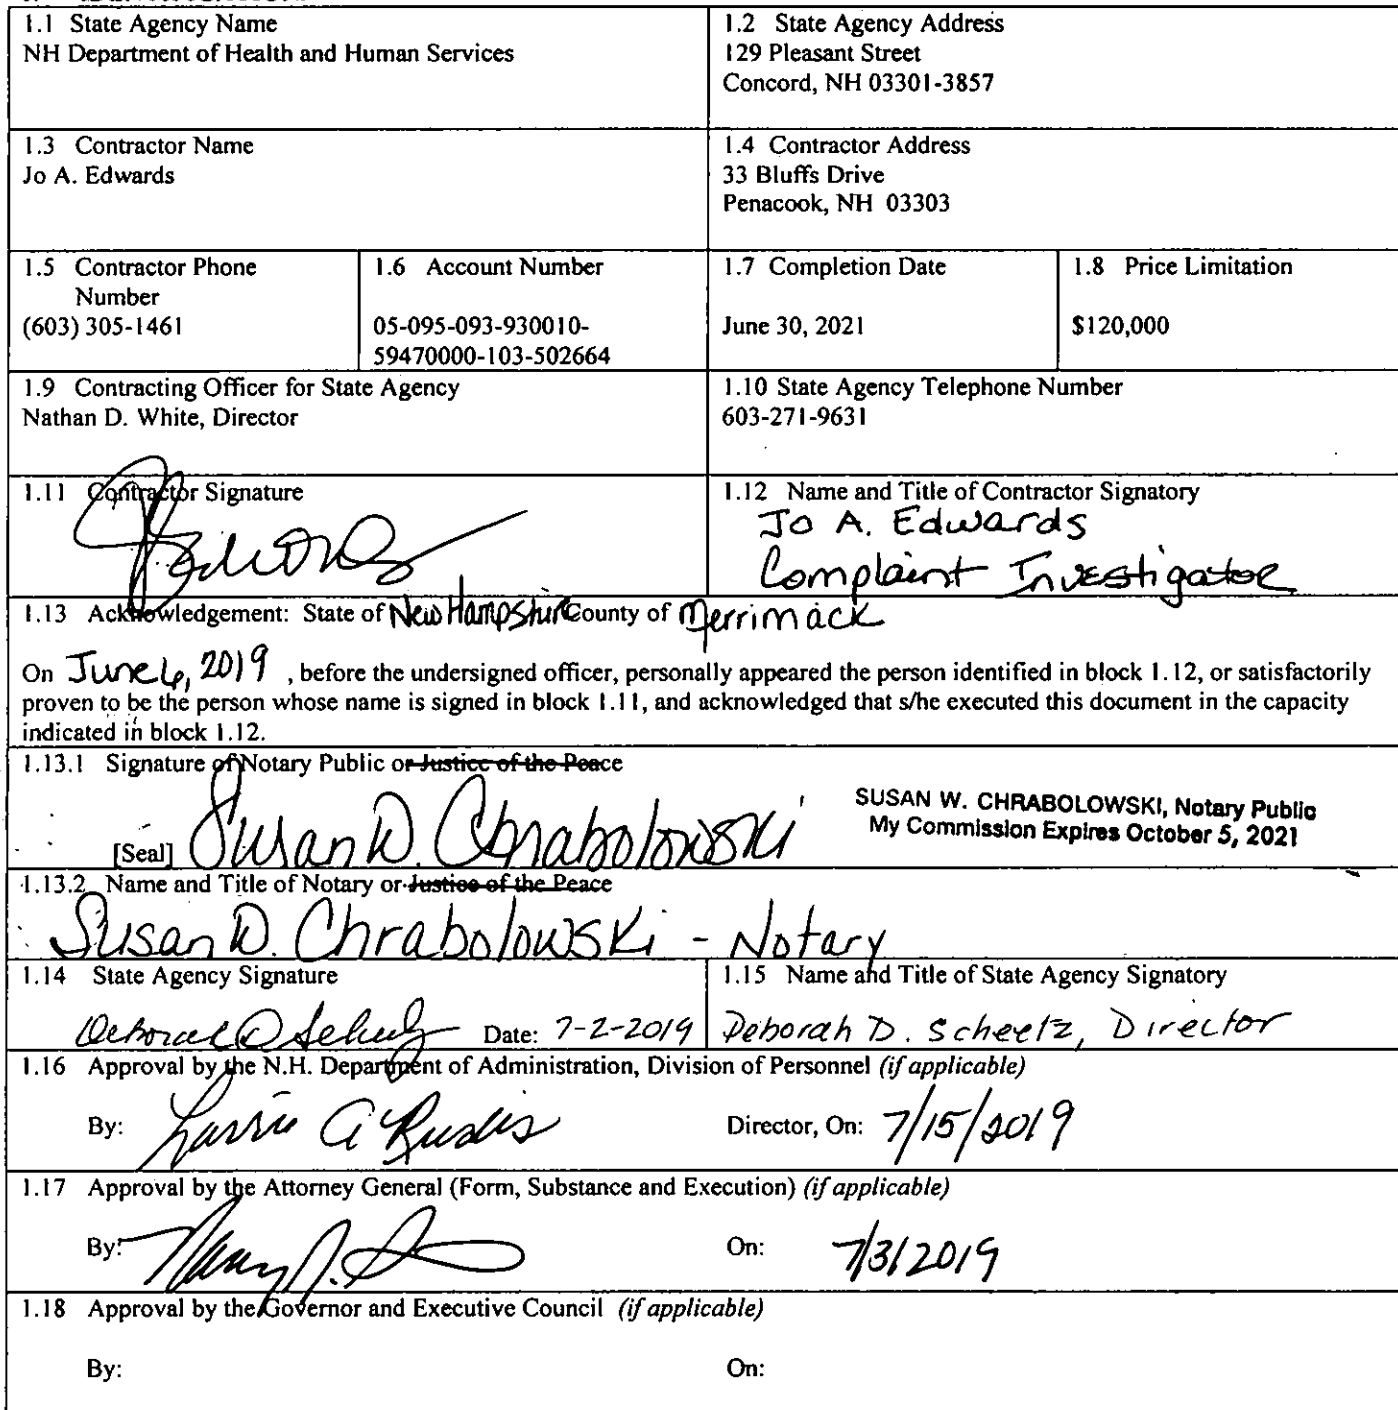 1.1 State Agency Name
NH Department of Health and Human Services
1.2 State Agency Address
129 Pleasant Street
Concord, NH 03301-3857
1.3 Contractor Name
Jo A. Edwards
1.4 Contractor Address
33 Bluffs Drive
Penacook, NH 03303
1.5 Contractor Phone
Number
(603) 305-1461
1.6 Account Number
05-095-093-930010-
59470000-103-502664
1.7 Completion Date
June 30, 2021
1.8 Price Limitation
$120,000
1.9 Contracting Officer for State Agency
Nathan D. White, Director
1.10 State Agency Telephone Number
603-271-9631
1.11 Contractor Signature
1.12 Name and Title of Contractor Signatory
Jo A. Edwards
Complaint Investigator
1.13 Acknowledgement: State of New Hampshire County of Merrimack
On June 6, 2019 , before the undersigned officer, personally appeared the person identified in block 1.12, or satisfactorily
proven to be the person whose name is signed in block 1.11, and acknowledged that s/he executed this document in the capacity
indicated in block 1.12.
1.13.1 Signature of Notary Public or Justice of the Peace
SUSAN W. CHRABOLOWSKI, Notary Public
My Commission Expires October 5, 2021
[Seal] Susan W. Chrabolowski
1.13.2 Name and Title of Notary or Justice of the Peace
Susan W. Chrabolowski - Notary
1.14 State Agency Signature
Date: 7-2-2019
1.15 Name and Title of State Agency Signatory
Deborah D. Scheetz, Director
1.16 Approval by the N.H. Department of Administration, Division of Personnel (if applicable)
By:
Director, On: 7/15/2019
1.17 Approval by the Attorney General (Form, Substance and Execution) (if applicable)
By:
On: 7/3/2019
1.18 Approval by the Governor and Executive Council (if applicable)
By:
On: